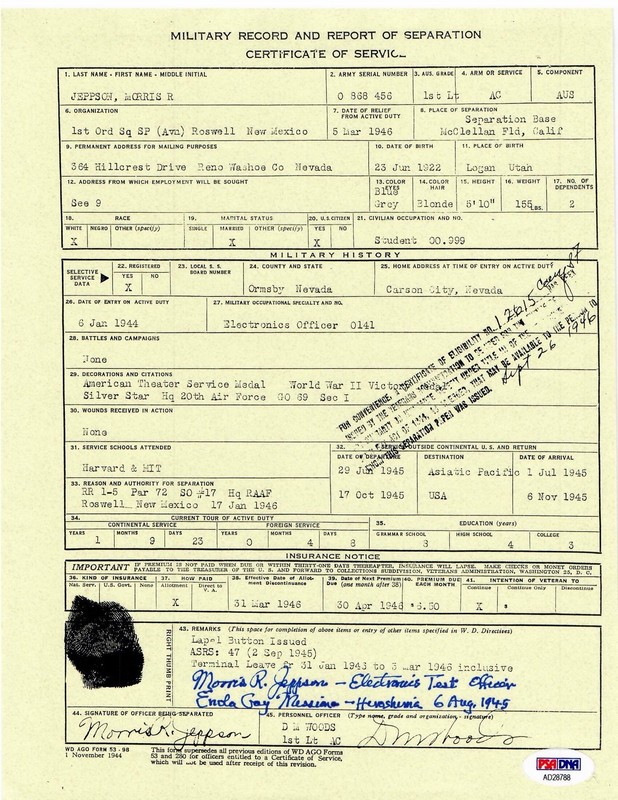 MILITARY RECORD AND REPORT OF SEPARATION
CERTIFICATE OF SERVIC
1. LAST NAME - FIRST NAME - MIDDLE INITIAL
2. ARMY SERIAL NUMBER
3. AUS. GRADE
4. ARM OR SERVICE
5. COMPONENT
JEPPSON, MORRIS R
O 868 456
1st Lt
AC
AUS
6. ORGANIZATION
7. DATE OF RELIEF FROM ACTIVE DUTY
8. PLACE OF SEPARATION
1st Ord Sq SP (Avn) Roswell New Mexico
5 Mar 1946
Separation Base
McClellan Fld, Calif
9. PERMANENT ADDRESS FOR MAILING PURPOSES
10. DATE OF BIRTH
11. PLACE OF BIRTH
364 Hillcrest Drive Reno Washoe Co Nevada
23 Jun 1922
Logan Utah
12. ADDRESS FROM WHICH EMPLOYMENT WILL BE SOUGHT
13. COLOR EYES
14. COLOR HAIR
15. HEIGHT
16. WEIGHT
17. NO. OF DEPENDENTS
See 9
Blue
Grey
Blonde
5'10"
155 LBS.
2
18. RACE
19. MARITAL STATUS
20. U.S. CITIZEN
21. CIVILIAN OCCUPATION AND NO.
WHITE NEGRO OTHER (specify)
SINGLE MARRIED OTHER (specify)
YES NO
X
X
X
Student 00.999
MILITARY HISTORY
SELECTIVE SERVICE DATA
22. REGISTERED
YES NO
X
23. LOCAL S.S. BOARD NUMBER
24. COUNTY AND STATE
25. HOME ADDRESS AT TIME OF ENTRY ON ACTIVE DUTY
Ormsby Nevada
Carson City, Nevada
26. DATE OF ENTRY ON ACTIVE DUTY
27. MILITARY OCCUPATIONAL SPECIALTY AND NO.
6 Jan 1944
Electronics Officer 0141
28. BATTLES AND CAMPAIGNS
None
29. DECORATIONS AND CITATIONS
American Theater Service Medal World War II Victory
Silver Star Hq 20th Air Force GO 69 Sec I
FOR CONVENIENCE, A CERTIFICATE OF ELIGIBILITY NO. 12615
THIS SEPARATION PAPER WAS ISSUED.
Sept 26 1946
30. WOUNDS RECEIVED IN ACTION
None
31. SERVICE SCHOOLS ATTENDED
32. SERVICE OUTSIDE CONTINENTAL U.S. AND RETURN
DATE OF DEPARTURE
DESTINATION
DATE OF ARRIVAL
Harvard & MIT
29 Jun 1945
Asiatic Pacific
1 Jul 1945
33. REASON AND AUTHORITY FOR SEPARATION
RR 1-5 Par 72 SO #17 Hq RAAF
Roswell New Mexico 17 Jan 1946
17 Oct 1945
USA
6 Nov 1945
34. CURRENT TOUR OF ACTIVE DUTY
35. EDUCATION (years)
CONTINENTAL SERVICE
FOREIGN SERVICE
YEARS MONTHS DAYS YEARS MONTHS DAYS
GRAMMAR SCHOOL
HIGH SCHOOL
COLLEGE
1 9 23 0 4 8
8
4
3
INSURANCE NOTICE
IMPORTANT IF PREMIUM IS NOT PAID WHEN DUE OR WITHIN THIRTY-ONE DAYS THEREAFTER, INSURANCE WILL LAPSE. MAKE CHECKS OR MONEY ORDERS PAYABLE TO THE TREASURER OF THE U. S. AND FORWARD TO COLLECTIONS SUBDIVISION, VETERANS ADMINISTRATION, WASHINGTON 25, D. C.
36. KIND OF INSURANCE
37. HOW PAID
38. Effective Date of Allotment Discontinuance
39. Date of Next Premium Due (one month after 38)
40. PREMIUM DUE EACH MONTH
41. INTENTION OF VETERAN TO
Nat. Serv. U.S. Govt. None
Allotment Direct to V. A.
Continue Continue Only Discontinue
X
31 Mar 1946
30 Apr 1946
$6.50
X
$
43. REMARKS (This space for completion of above items or entry of other items specified in W. D. Directives)
RIGHT THUMB PRINT
Lapel Button Issued
ASRS: 47 (2 Sep 1945)
Terminal Leave fr 31 Jan 1946 to 5 Mar 1946 inclusive
Morris R. Jeppson - Electronics Test Officer
Enola Gay Mission - Hiroshima 6 Aug. 1945
44. SIGNATURE OF OFFICER BEING SEPARATED
45. PERSONNEL OFFICER (Type name, grade and organization - signature)
Morris R. Jeppson
D M WOODS
1st Lt AC
D M Woods
WD AGO FORM 53 - 98
1 November 1944
This form supersedes all previous editions of WD AGO Forms 53 and 280 for officers entitled to a Certificate of Service, which will not be used after receipt of this revision.
PSA DNA
AD28788